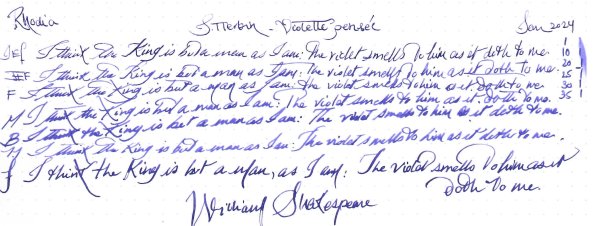 Rhodia J. Herbin - Violette pensée Jan 2024
EF I think the King is but a man as I am: the violet smells to him as it doth to me. 1
10
EF I think the King is but a man as I am: the violet smells to him as it doth to me. 20
25
F I think the King is but a man as I am: the violet smells to him as it doth to me 30
35
M I think the King is but a man as I am: the violet smells to him as it doth to me.
B I think the King is but a man as I am: The violet smells to him as it doth to me.
I think the King is but a man as I am: The violet smells to him as it doth to me.
J I think the King is but a man, as I am: The violet smells to him as it
doth to me.
William Shakespeare